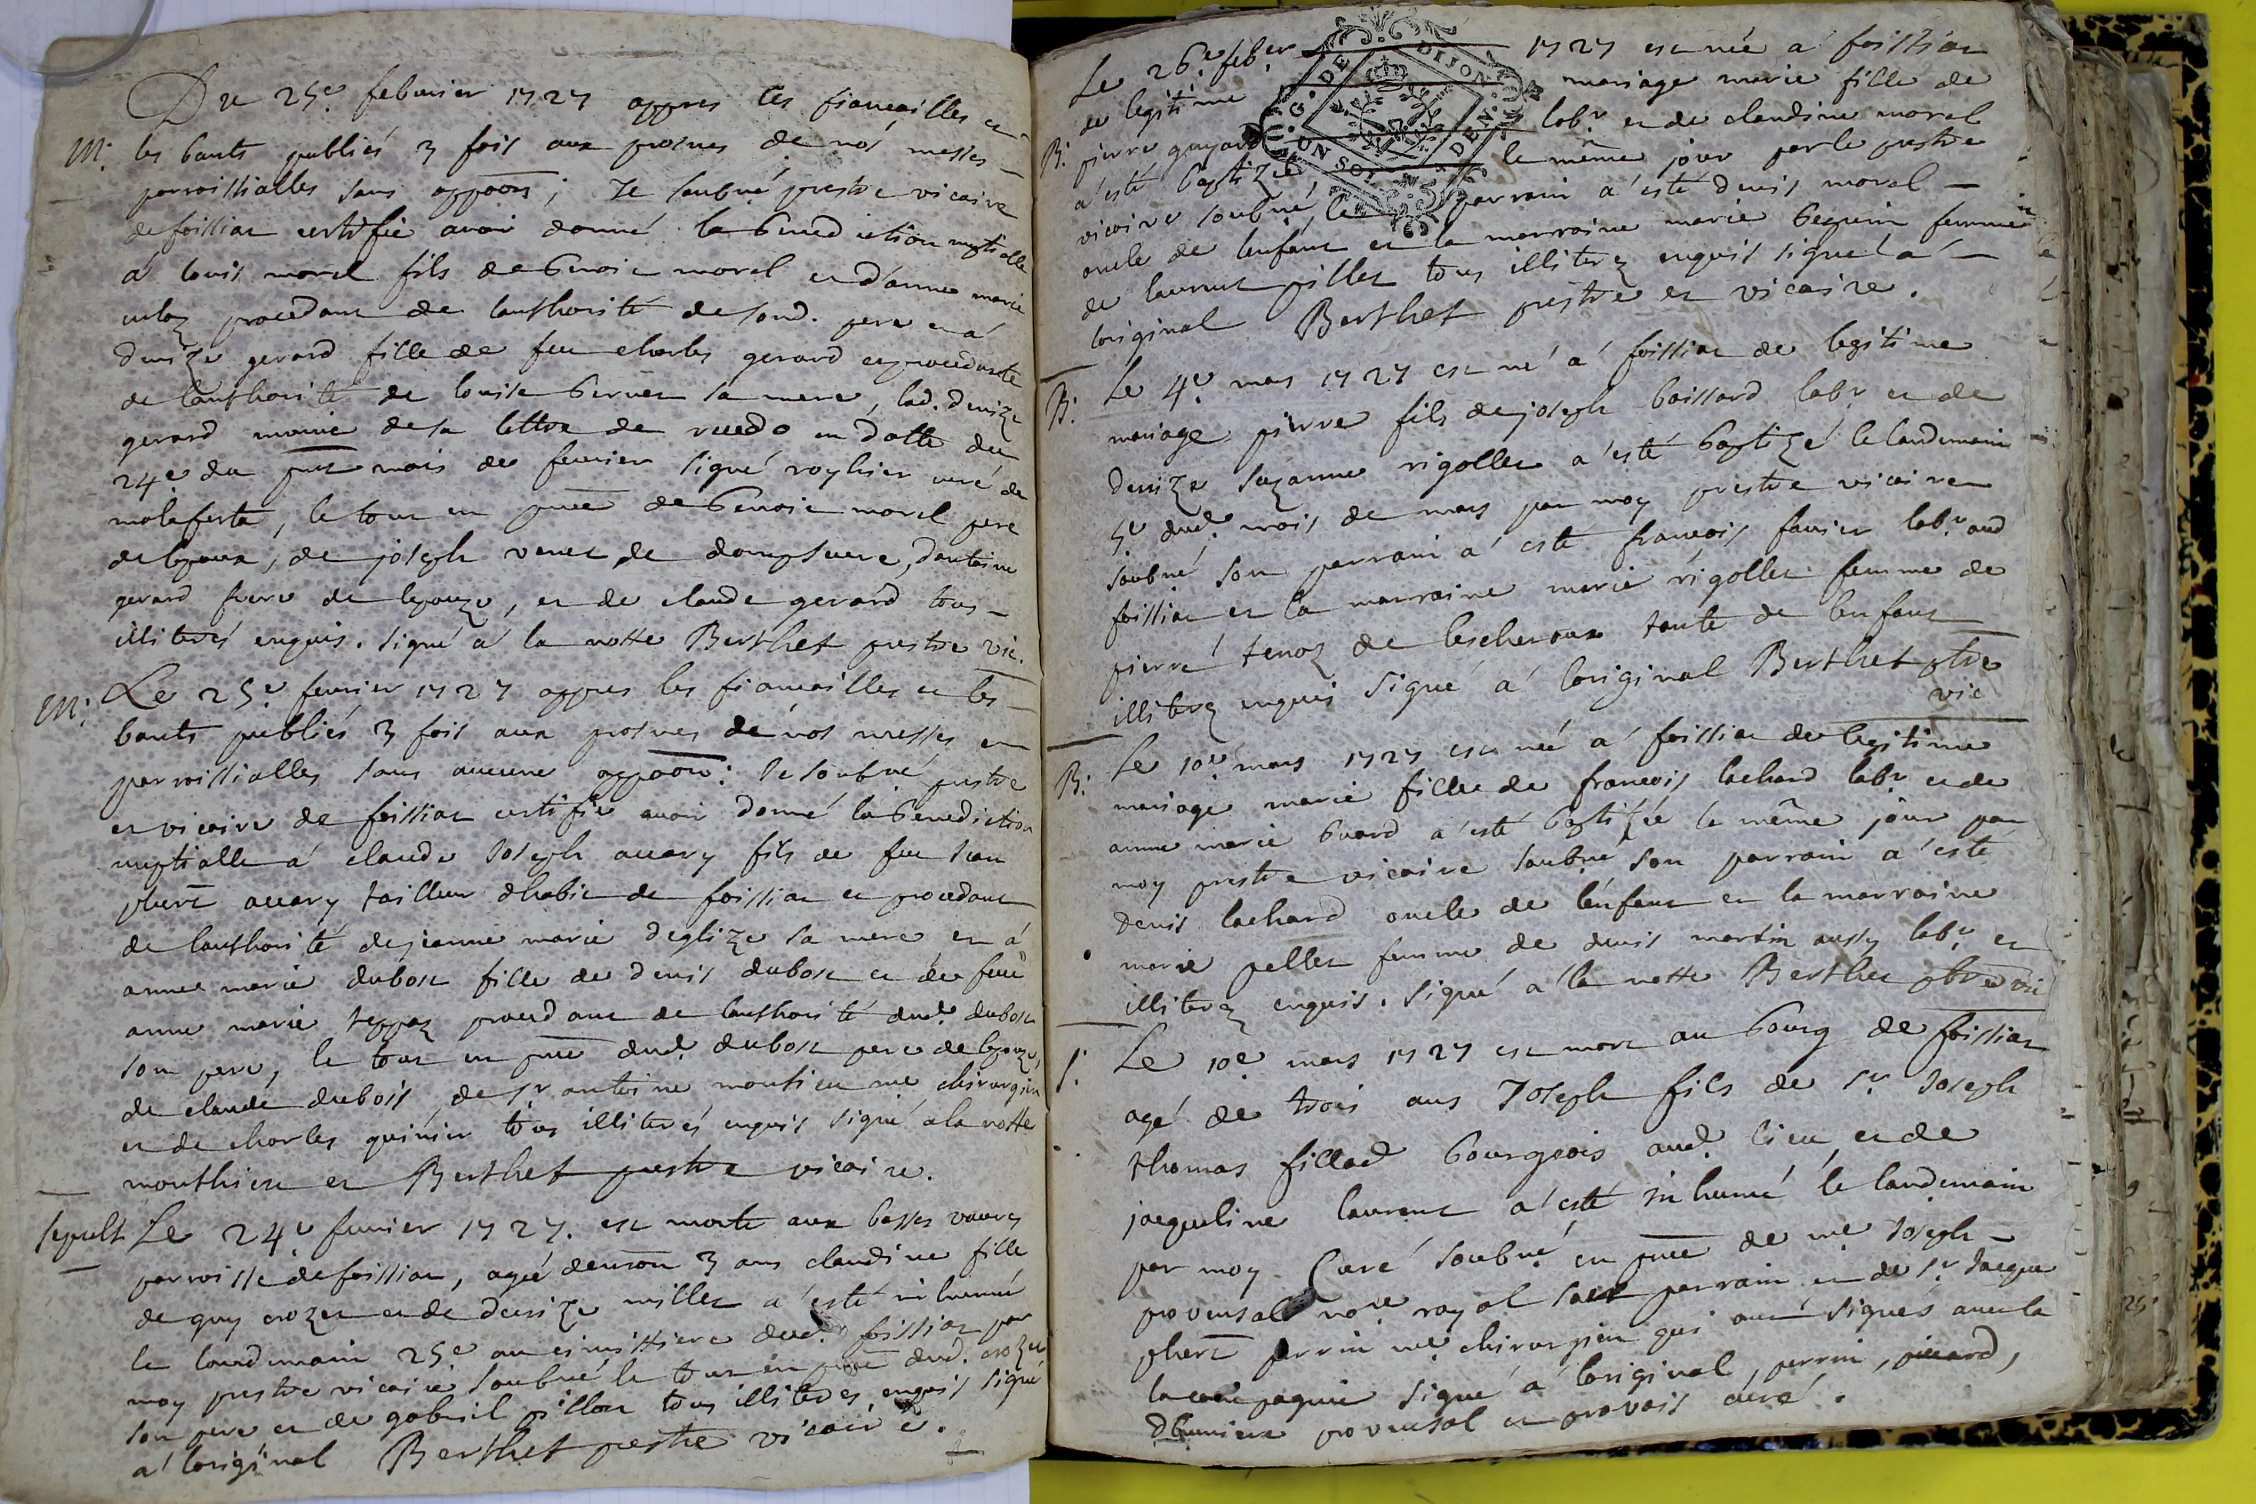 Du 25e. febvrier 1727 appres les fiancailles et
M: les bants publiés 3 fois aux prosnes de nos messes
parroissialles sans appoon; Je soubné prestre vicaire
de foissiat certifie avoir donné la benediction nuptialle
a louis morel fils de benoit morel et d'anne marie
procedant de lauthorité de sond. pere et a
denize gerard fille de feu charles gerard et procedante
de lauthorité de louise bernet sa mere, lad. denize
gerard munie de sa lettre de en datte du
24e du pnt mois de fevrier signé royhier curé de
malaferta, le tout en pnce de benoit morel pere
de lepoux, de joseph venet de dompsure, dantoine
gerard frere de lepouze, et de claude gerard tous
illiterés enquis. signé a la notte Berthet prestre vic.
M: Le 25e. fevrier 1727 appres les fiancailles et les
bants publiés 3 fois aux prosnes de nos messes
parroissialles sans aucune appoon: Je soubné prestre
et vicaire de foissiat certifie avoir donné la benediction
nuptialle a claude Joseph avary fils de feu Jean
phert avary tailleur dhabit de foissiat et procedant
de lauthorité de jeanne marie deglize sa mere et a
anne marie dubost fille de denis dubost et de feue
anne marie teppaz procedant de lauthorité dud. dubost
son pere, le tout en pnce dud. dubost pere de lepouze,
de claude dubois, de sr antoine monthieu me chirurgien
et de charles quinier tous illiterés enquis signé a la notte
monthieu et Berthet prestre vicaire.
sepult. Le 24e fevrier 1727. est morte aux basses vavres
parroisse de foissiat, agée denvon 3 ans claudine fille
de guy crozet et de denize millet a esté inhumée
le landemain 25e au cimittiere dud. foissiat par
moy prestre vicaire soubné le tout en pnce dud. crozet
son pere et de gabriel pillon tous illiteres enquis signé
a loriginal Berthet prestre vicaire.
Le 26e. feber 1727 est née a foissiat
de legitime mariage marie fille de
B: pierre guyard labr. et de claudine morel
a esté baptizée le même jour par le prestre
vicaire soubné, le parrain a esté denis morel
oncle de lenfant et la marraine marie beguin femme
de laurent pillet tous illiterez enquis signé a
loriginal Berthet prestre et vicaire.
G. DE DIJON
UN SOL 4 DEN.
B: Le 4e. mars 1727 est né a foissiat de legitime
mariage pierre fils de joseph boissard labr et de
denize suzanne rigollet a esté baptizé le landemain
5e. dud. mois de mars par moy prestre vicaire
soubné son parrain a esté francois favier labr. aud
foissiat et la marraine marie rigollet femme de
pierre tenoz de lescheroux tante de lenfant
illiterez enquis signé a loriginal Berthet ptre
vic
B: Le 10e. mars 1727 est née a foissiat de legitime
mariage marie fille de francois lachard labr. et de
anne marie buard a esté baptizée le même jour par
moy prestre vicaire soubné son parrain a esté
denis lachard oncle de lenfant et la marraine
marie pellet femme de denis martin aussy labr. et
illiterez enquis. signé a la notte Berthet pbre vic
s: Le 10e mars 1727 est mort au bourg de foissiat
agé de trois ans Joseph fils de sr Joseph
thomas fillod bourgeois aud. lieu et de
jacqueline laurent a esté inhumé le landemain
par moy Curé soubné en pnce de me Joseph
provensal nore royal son parrain et de sr Jacque
phert perrin me chirurgien qui ont signés avec la
la compagnie signé a loriginal, perrin, picard,
provensal et pravais curé.